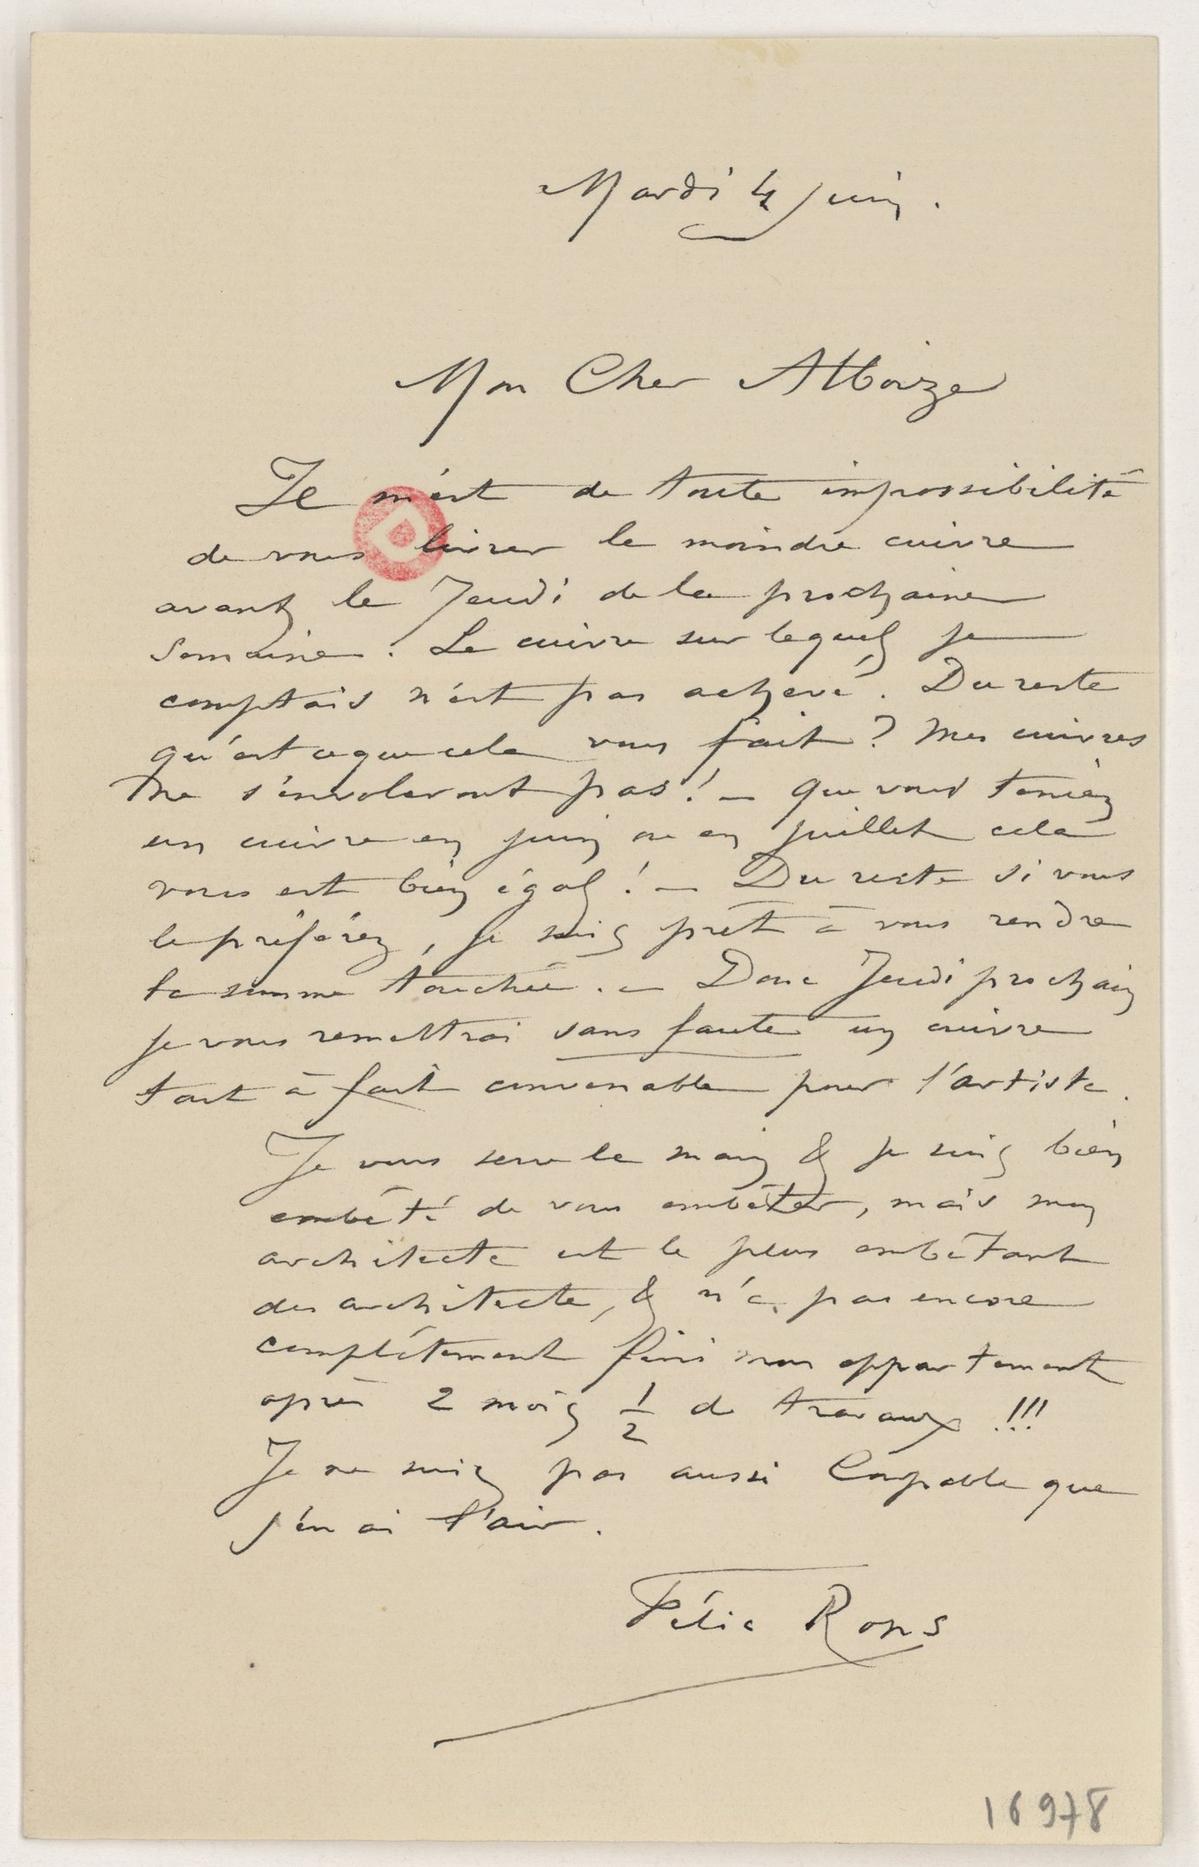 Mardi 4 juin.
Mon Cher Alboize
Il m'est de toute impossibilité
de vous livrer le moindre cuivre
avant le Jeudi de la prochaine
Semaine. Le cuivre sur lequel je
comptais n'est pas achevé. Du reste
qu'est ce que cela vous fait ? Mes cuivres
ne s'envoleront pas ! — que vous teniez
un cuivre en juin ou en juillet cela
vous est bien égal ! — Du reste si vous
le préférez, je suis prêt à vous rendre
la somme touchée. — Donc Jeudi prochain
je vous remettrai sans faute un cuivre
tout à fait convenable pour l'artiste.
Je vous serre la main & je suis bien
embêté de vous embêter, mais mon
architecte est le plus embêtant
des architecte, & n'a pas encore
complètement fini mon appartement
après 2 mois 1/2 de travaux !!!
Je ne suis pas aussi Coupable que
j'en ai l'air.
Félic Rops
16978